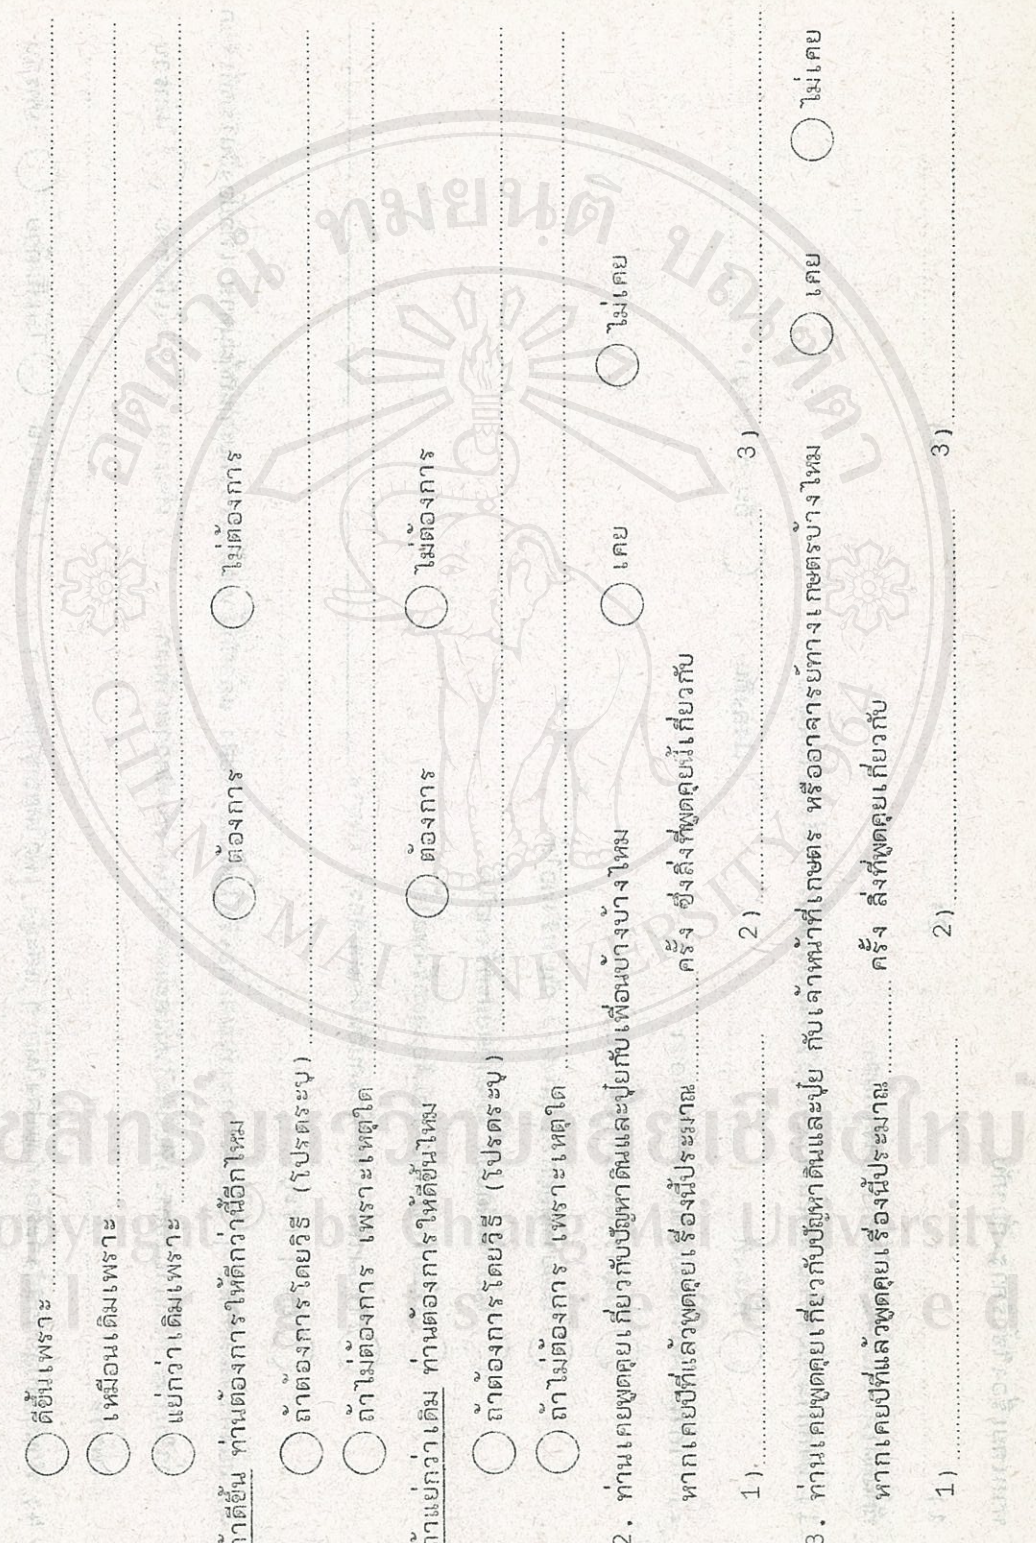 ◯ ดีขึ้นเพราะ
◯ เหมือนเดิมเพราะ
◯ แย่กว่าเดิมเพราะ
ถ้าดีขึ้น ท่านต้องการให้ดีกว่านี้อีกไหม ◯ ต้องการ ◯ ไม่ต้องการ
◯ ถ้าต้องการโดยวิธี (โปรดระบุ)
◯ ถ้าไม่ต้องการ เพราะเหตุใด
ถ้าแย่กว่าเดิม ท่านต้องการให้ดีขึ้นไหม ◯ ต้องการ ◯ ไม่ต้องการ
◯ ถ้าต้องการโดยวิธี (โปรดระบุ)
◯ ถ้าไม่ต้องการ เพราะเหตุใด
2. ท่านเคยพูดคุยเกี่ยวกับปัญหาดินและปุ๋ยกับเพื่อนบ้างบ้างไหม ◯ เคย ◯ ไม่เคย
หากเคยปีที่แล้วพูดคุยเรื่องนี้ประมาณ..........ครั้ง ซึ่งสิ่งที่พูดคุยนี้เกี่ยวกับ
1).......... 2).......... 3)..........
3. ท่านเคยพูดคุยเกี่ยวกับปัญหาดินและปุ๋ย กับเจ้าหน้าที่เกษตร หรืออาจารย์ทางเกษตรบ้างไหม ◯ เคย ◯ ไม่เคย
หากเคยปีที่แล้วพูดคุยเรื่องนี้ประมาณ..........ครั้ง สิ่งที่พูดคุยเกี่ยวกับ
1).......... 2).......... 3)..........
อตฺตานํ ทมยนฺติ ปณฺฑิตา
CHIANG MAI UNIVERSITY 1964
by Chiang Mai University